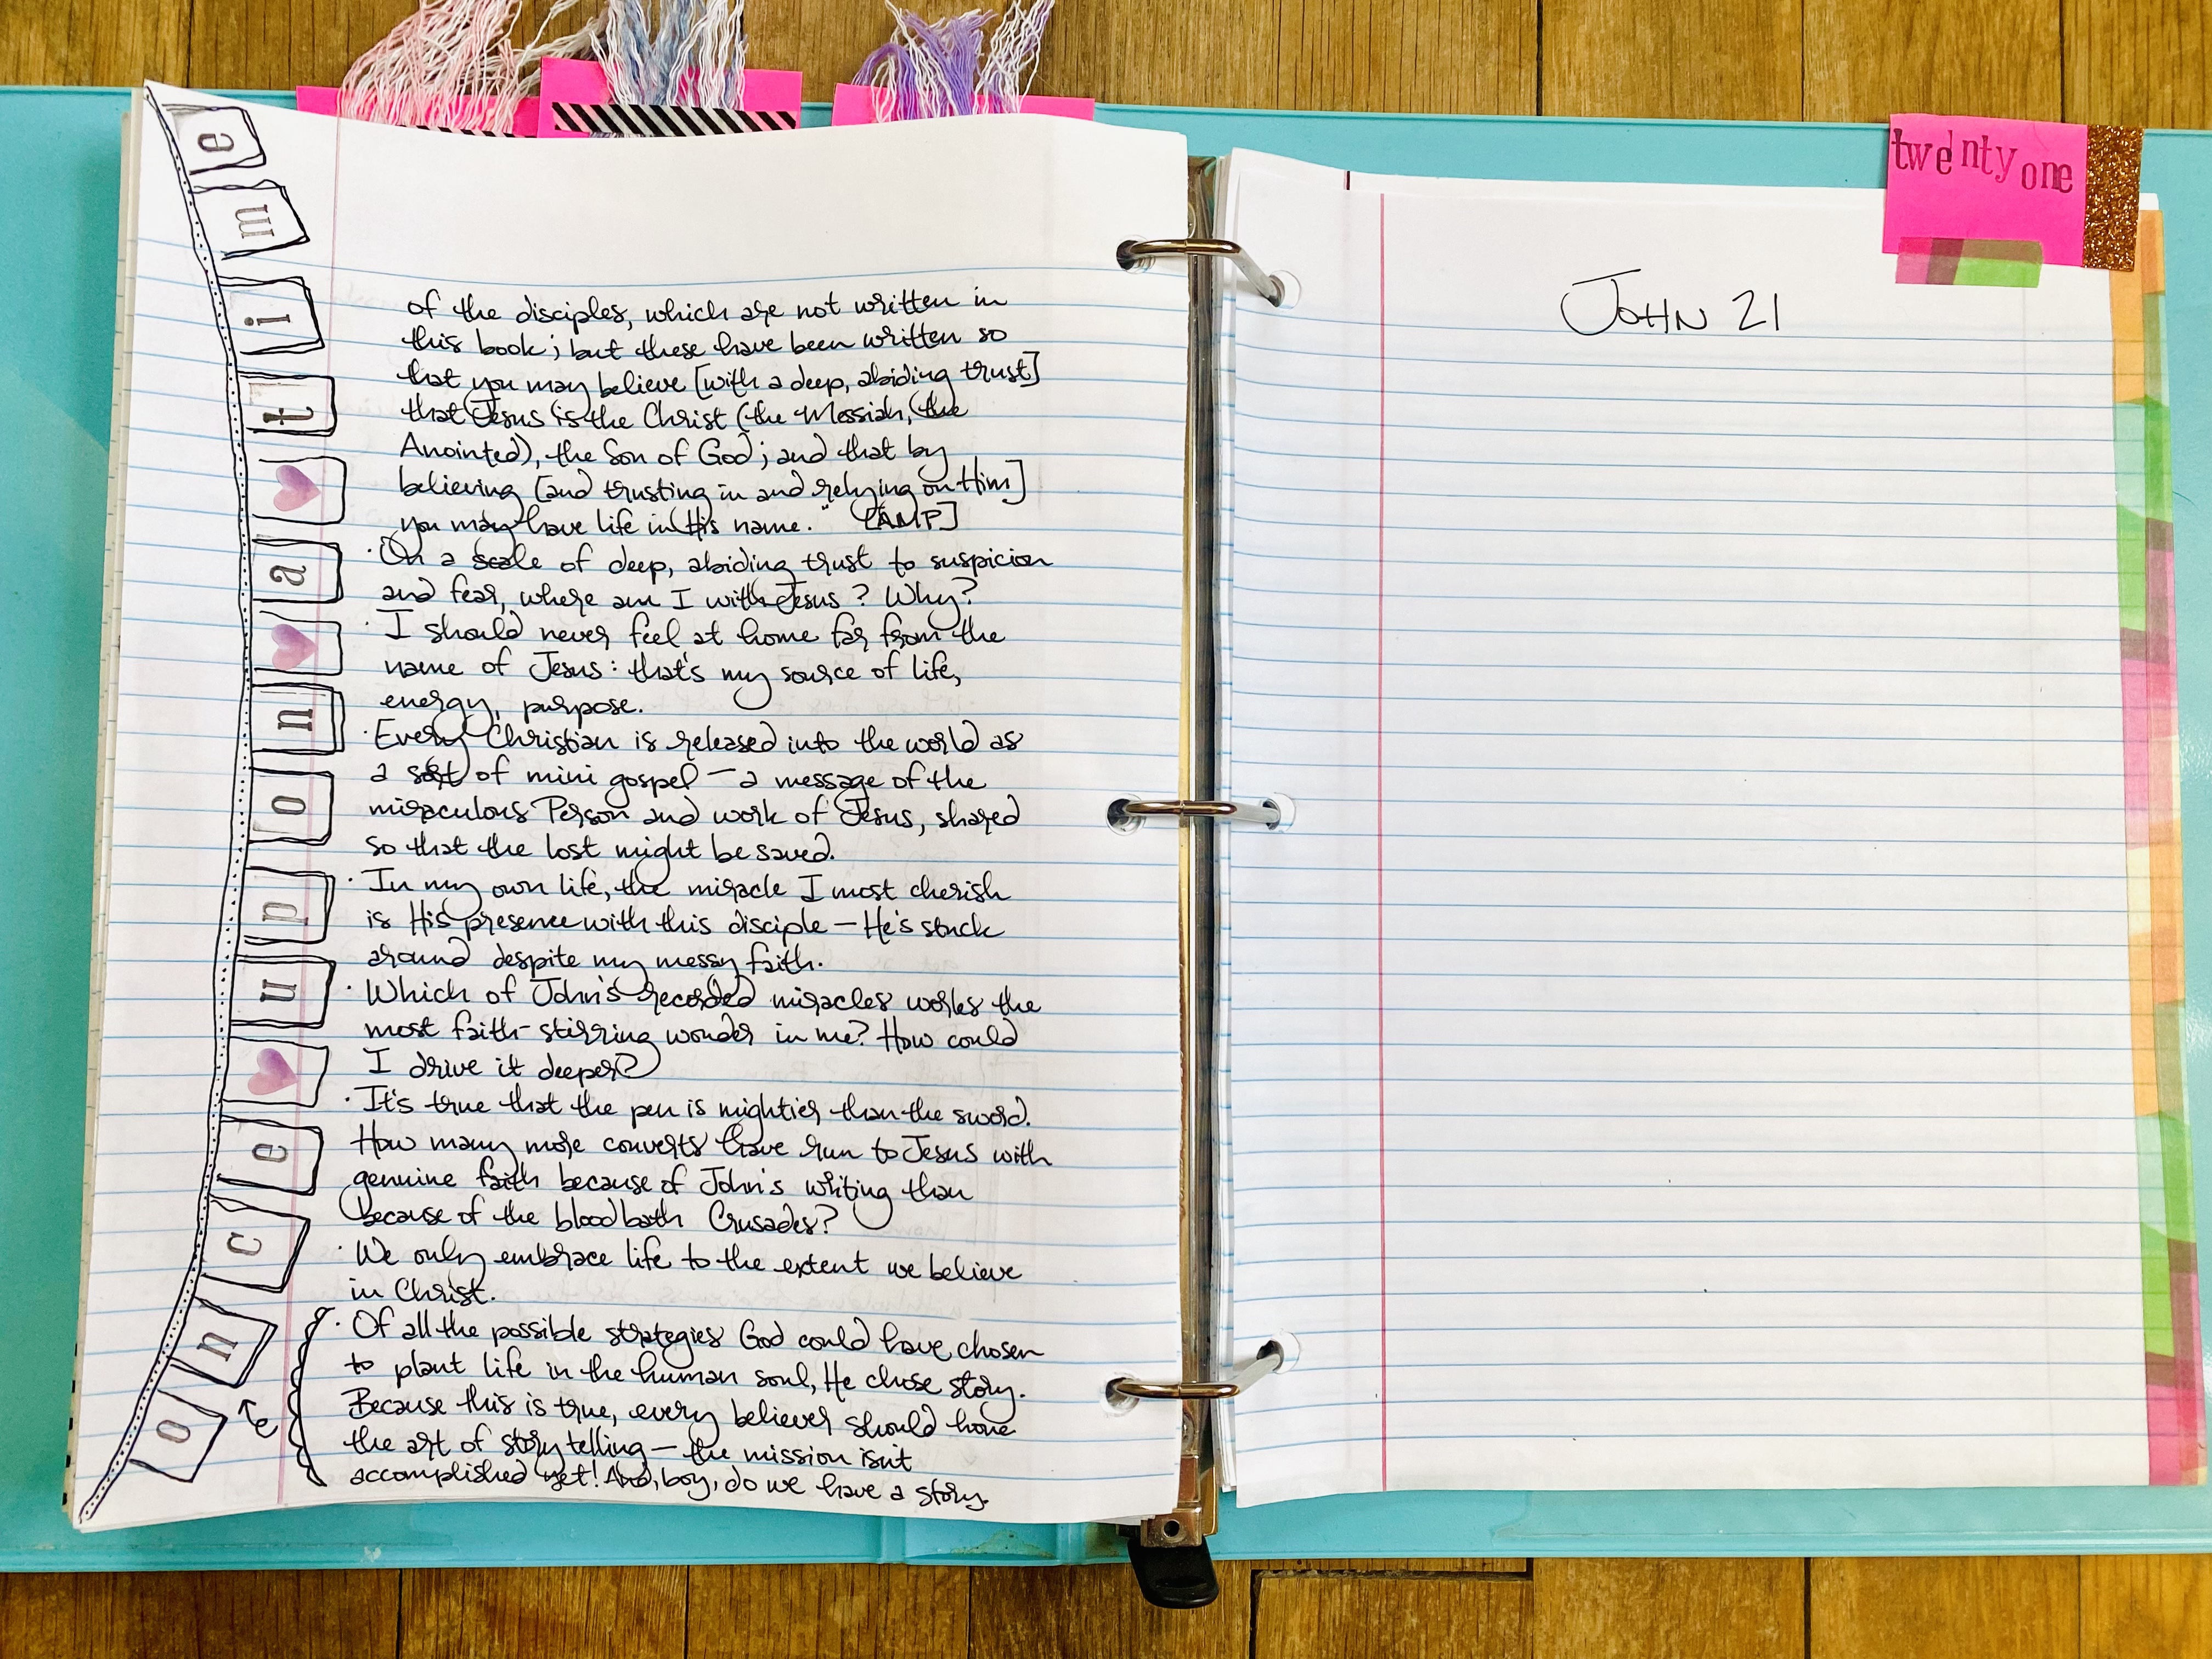 once ♥ upon ♥ a ♥ time
of the disciples, which are not written in
this book; but these have been written so
that you may believe [with a deep, abiding trust]
that Jesus is the Christ (the Messiah, the
Anointed), the Son of God; and that by
believing [and trusting in and relying on Him]
you may have life in His name." [AMP]
· On a scale of deep, abiding trust to suspicion
and fear, where am I with Jesus? Why?
· I should never feel at home far from the
name of Jesus: that's my source of life,
energy, purpose.
· Every Christian is released into the world as
a sort of mini gospel — a message of the
miraculous Person and work of Jesus, shared
so that the lost might be saved.
· In my own life, the miracle I most cherish
is His presence with this disciple — He's stuck
around despite my messy faith.
· Which of John's recorded miracles works the
most faith-stirring wonder in me? How could
I drive it deeper?
· It's true that the pen is mightier than the sword.
How many more converts have run to Jesus with
genuine faith because of John's writing than
because of the bloodbath Crusades?
· We only embrace life to the extent we believe
in Christ.
· Of all the possible strategies God could have chosen
to plant life in the human soul, He chose story.
Because this is true, every believer should hone
the art of storytelling — the mission isn't
accomplished yet! And, boy, do we have a story.
twenty one
JOHN 21